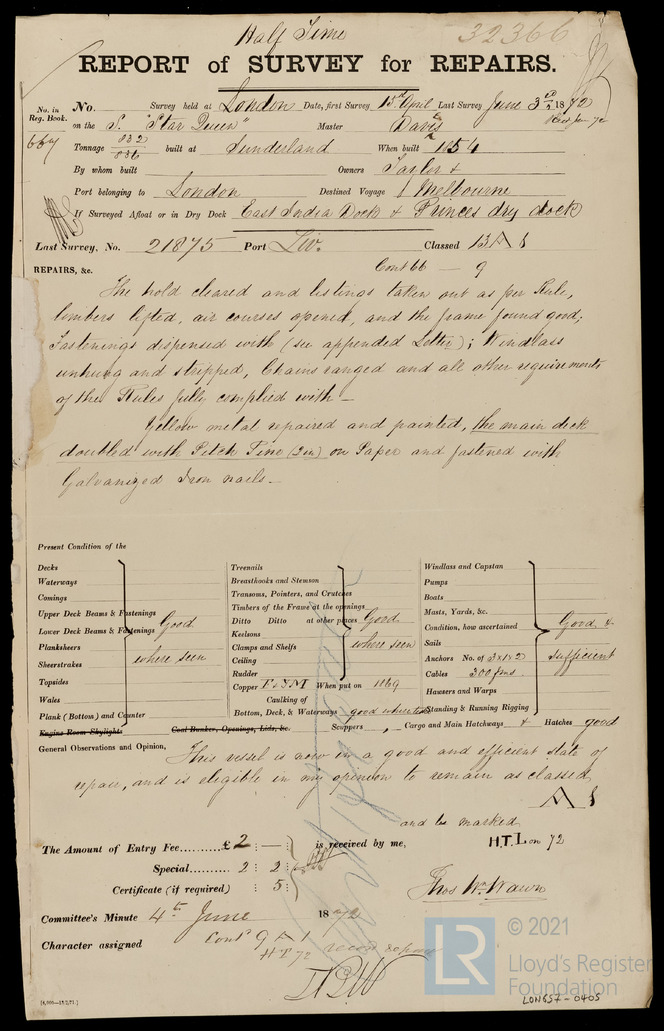 Half Time
32366
REPORT of SURVEY for REPAIRS.
No. in Reg. Book. No. Survey held at London Date, first Survey 15th April Last Survey June 3rd 1872
667 on the S. "Star Queen" Master Davis
Tonnage 832 836 built at Sunderland When built 1854
By whom built Owners Taylor &
Port belonging to London Destined Voyage Melbourne
If Surveyed Afloat or in Dry Dock East India Dock & Princes dry dock
Last Survey, No. 21875 Port Liv. Classed 13 A 1
REPAIRS, &c. Cont 66 — 9
The hold cleared and listings taken out as per Rule,
limbers lifted, air courses opened, and the frame found good;
Fastenings dispensed with (see appended Letter); Windlass
unhung and stripped, Chains ranged and all other requirements
of the Rules fully complied with —
Yellow metal repaired and painted, the main deck
doubled with Pitch Pine (2 in) on Paper and fastened with
Galvanized Iron nails. —
Present Condition of the
Decks
Waterways
Comings
Upper Deck Beams & Fastenings
Lower Deck Beams & Fastenings
Planksheers
Sheerstrakes
Topsides
Wales
Plank (Bottom) and Counter
Engine Room Skylights
Good
where seen
Treenails
Breasthooks and Stemson
Transoms, Pointers, and Crutches
Timbers of the Frame at the openings
Ditto Ditto at other places
Keelsons
Clamps and Shelfs
Ceiling
Rudder
Good
where seen
Copper F & YM When put on 1869
Caulking of
Bottom, Deck, & Waterways good where seen
Coal Bunker, Openings, Lids, &c.
Windlass and Capstan
Pumps
Boats
Masts, Yards, &c.
Condition, how ascertained
Sails
Anchors No. of 3 x 1 x 2
Cables 300 fms.
Hawsers and Warps
Standing & Running Rigging
Good &
sufficient
Scuppers, Cargo and Main Hatchways & Hatches good
General Observations and Opinion, This vessel is now in a good and efficient state of
repair, and is eligible in my opinion to remain as classed
A 1
and be marked
H.T. L on 72
The Amount of Entry Fee.......... £2 : — : is received by me,
Special.......... 2 : 2 :
Certificate (if required) : 5 :
Thos Wm Wawn
Committee's Minute 4th June 1872
Character assigned Cont'd 9 A 1
HT 72
[4,000—15/2/71.]
© 2021
LR
Lloyd's Register
Foundation
LON557-0405